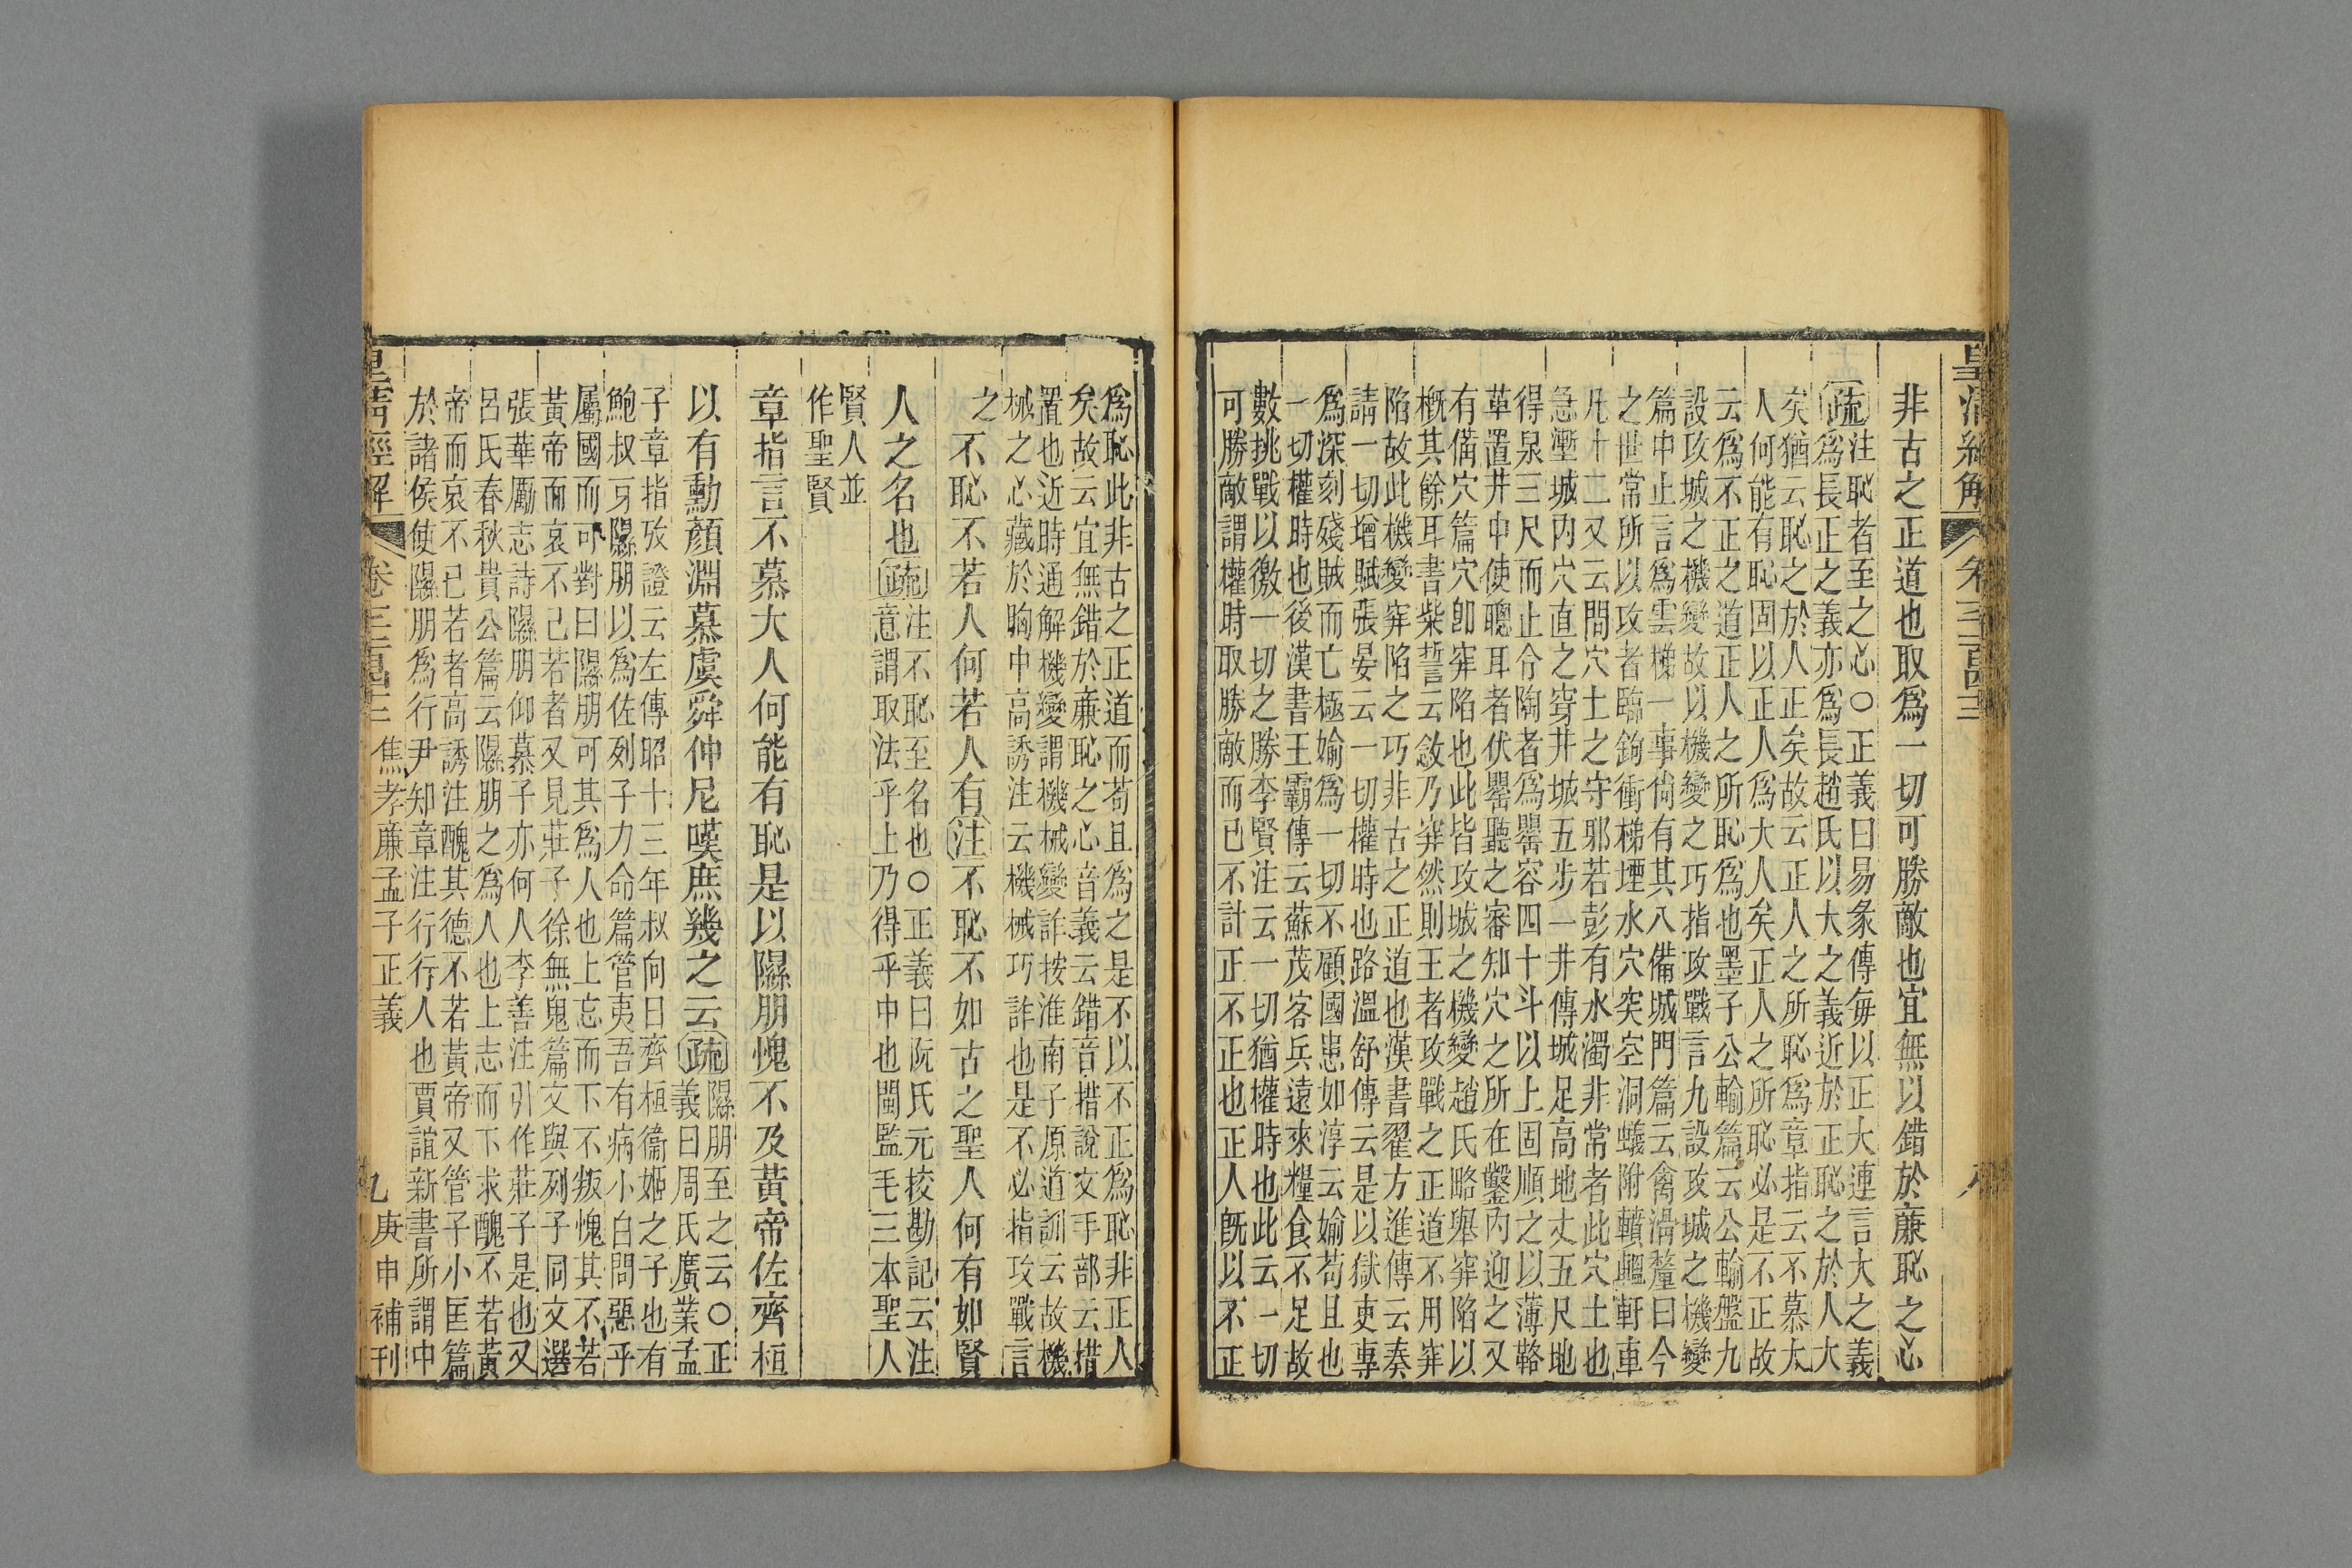 皇清經解 卷 三 八
非古之正道也取爲一切可勝敵也宜無以錯於廉恥之心
疏 注恥者至之心○正義曰易彖傳每以正大連言大之義
爲長正之義亦爲長趙氏以大之義近於正恥之於人大
矣猶云恥之於人正矣故云正人之所恥爲章指云不慕大
人何能有恥固以正人爲大人矣正人之所恥必是不正故
云爲不正之道正人之所恥爲也墨子公輸篇云公輸盤九
設攻城之機變故以機變之巧指攻戰言九設攻城之機變
篇中止言爲雲梯一事尙有其八備城門篇云禽滑釐曰今
之世常所以攻者臨鉤衝梯堙水穴突空洞蟻附轒轀軒車
凡十二又云問穴土之守邪若彭有水濁非常者此穴土也
急壍城內穴直之穿井城五步一井傅城足高地丈五尺地
得泉三尺而止令陶者爲罌容四十斗以上固順之以薄鞈
革置井中使聰耳者伏罌聽之審知穴之所在鑿內迎之又
有備穴篇穴卽穽陷也此皆攻城之機變趙氏略舉穽陷以
槪其餘耳書柴誓云敜乃穽然則王者攻戰之正道不用穽
陷故此機變穽陷之巧非古之正道也漢書翟方進傳云奏
請一切增賦張晏云一切權時也路溫舒傳云是以獄吏專
爲深刻殘賊而亡極媮爲一切不顧國患如淳云媮苟且也
一切權時也後漢書王霸傳云蘇茂客兵遠來糧食不足故
數挑戰以徼一切之勝李賢注云一切猶權時也此云一切
可勝敵謂權時取勝敵而已不計正不正也正人旣以不正
爲恥此非古之正道而苟且爲之是不以不正爲恥非正人
矣故云宜無錯於廉恥之心音義云錯音措說文手部云措
置也近時通解機變謂機械變詐按淮南子原道訓云故機
械之心藏於胸中高誘注云機械巧詐也是不必指攻戰言
之 不恥不若人何若人有 注 不恥不如古之聖人何有如賢
人之名也 疏 注不恥至名也○正義曰阮氏元挍勘記云注
意謂取法乎上乃得乎中也閩監毛三本聖人
賢人並
作聖賢
章指言不慕大人何能有恥是以隰朋愧不及黃帝佐齊桓
以有勳顏淵慕虞舜仲尼嘆庶幾之云 疏 隰朋至之云○正
義曰周氏廣業孟
子章指攷證云左傳昭十三年叔向曰齊桓衞姬之子也有
鮑叔牙隰朋以爲佐列子力命篇管夷吾有病小白問惡乎
屬國而可對曰隰朋可其爲人也上忘而下不叛愧其不若
黃帝而哀不己若者又見莊子徐無鬼篇文與列子同文選
張華勵志詩隰朋仰慕子亦何人李善注引作莊子是也又
呂氏春秋貴公篇云隰朋之爲人也上志而下求醜不若黃
帝而哀不已若者高誘注醜其德不若黃帝又管子小匡篇
於諸侯使隰朋爲行尹知章注行行人也賈誼新書所謂中
皇清經解 卷三 焦孝廉孟子正義 九 庚申補刊